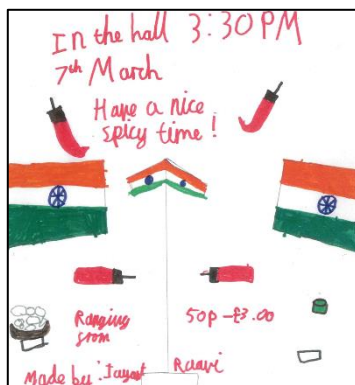 In the hall 3:30PM
7th March
Have a nice
spicy time!
Ranging 50p-£3.00
from
Made by: Jayant Raavi